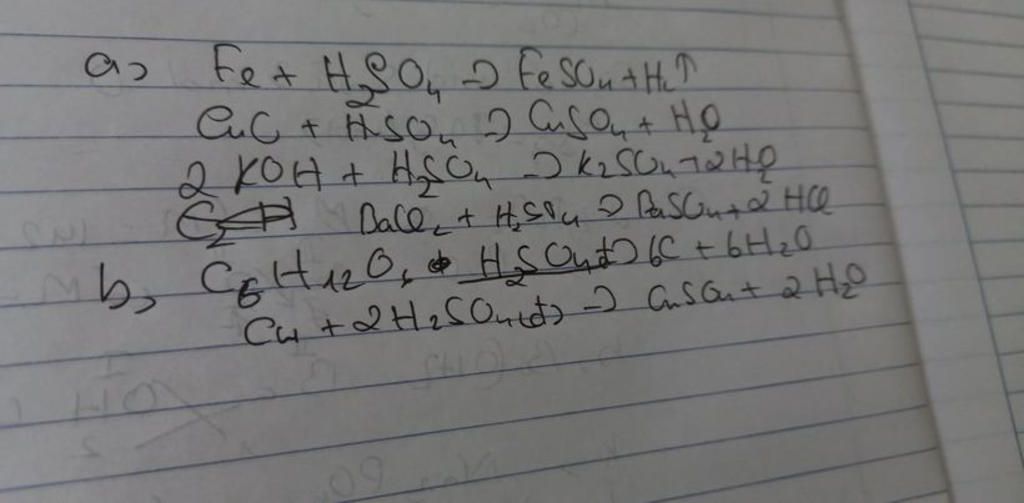 a) Fe + H2SO4 → FeSO4 + H2↑
CuO + H2SO4 → CuSO4 + H2O
2 KOH + H2SO4 → K2SO4 + 2H2O
BaCl2 + H2SO4 → BaSO4 + 2 HCl
b) C6H12O6 H2SO4 đ → 6C + 6H2O
Cu + 2H2SO4(đ) → CuSO4 + 2H2O